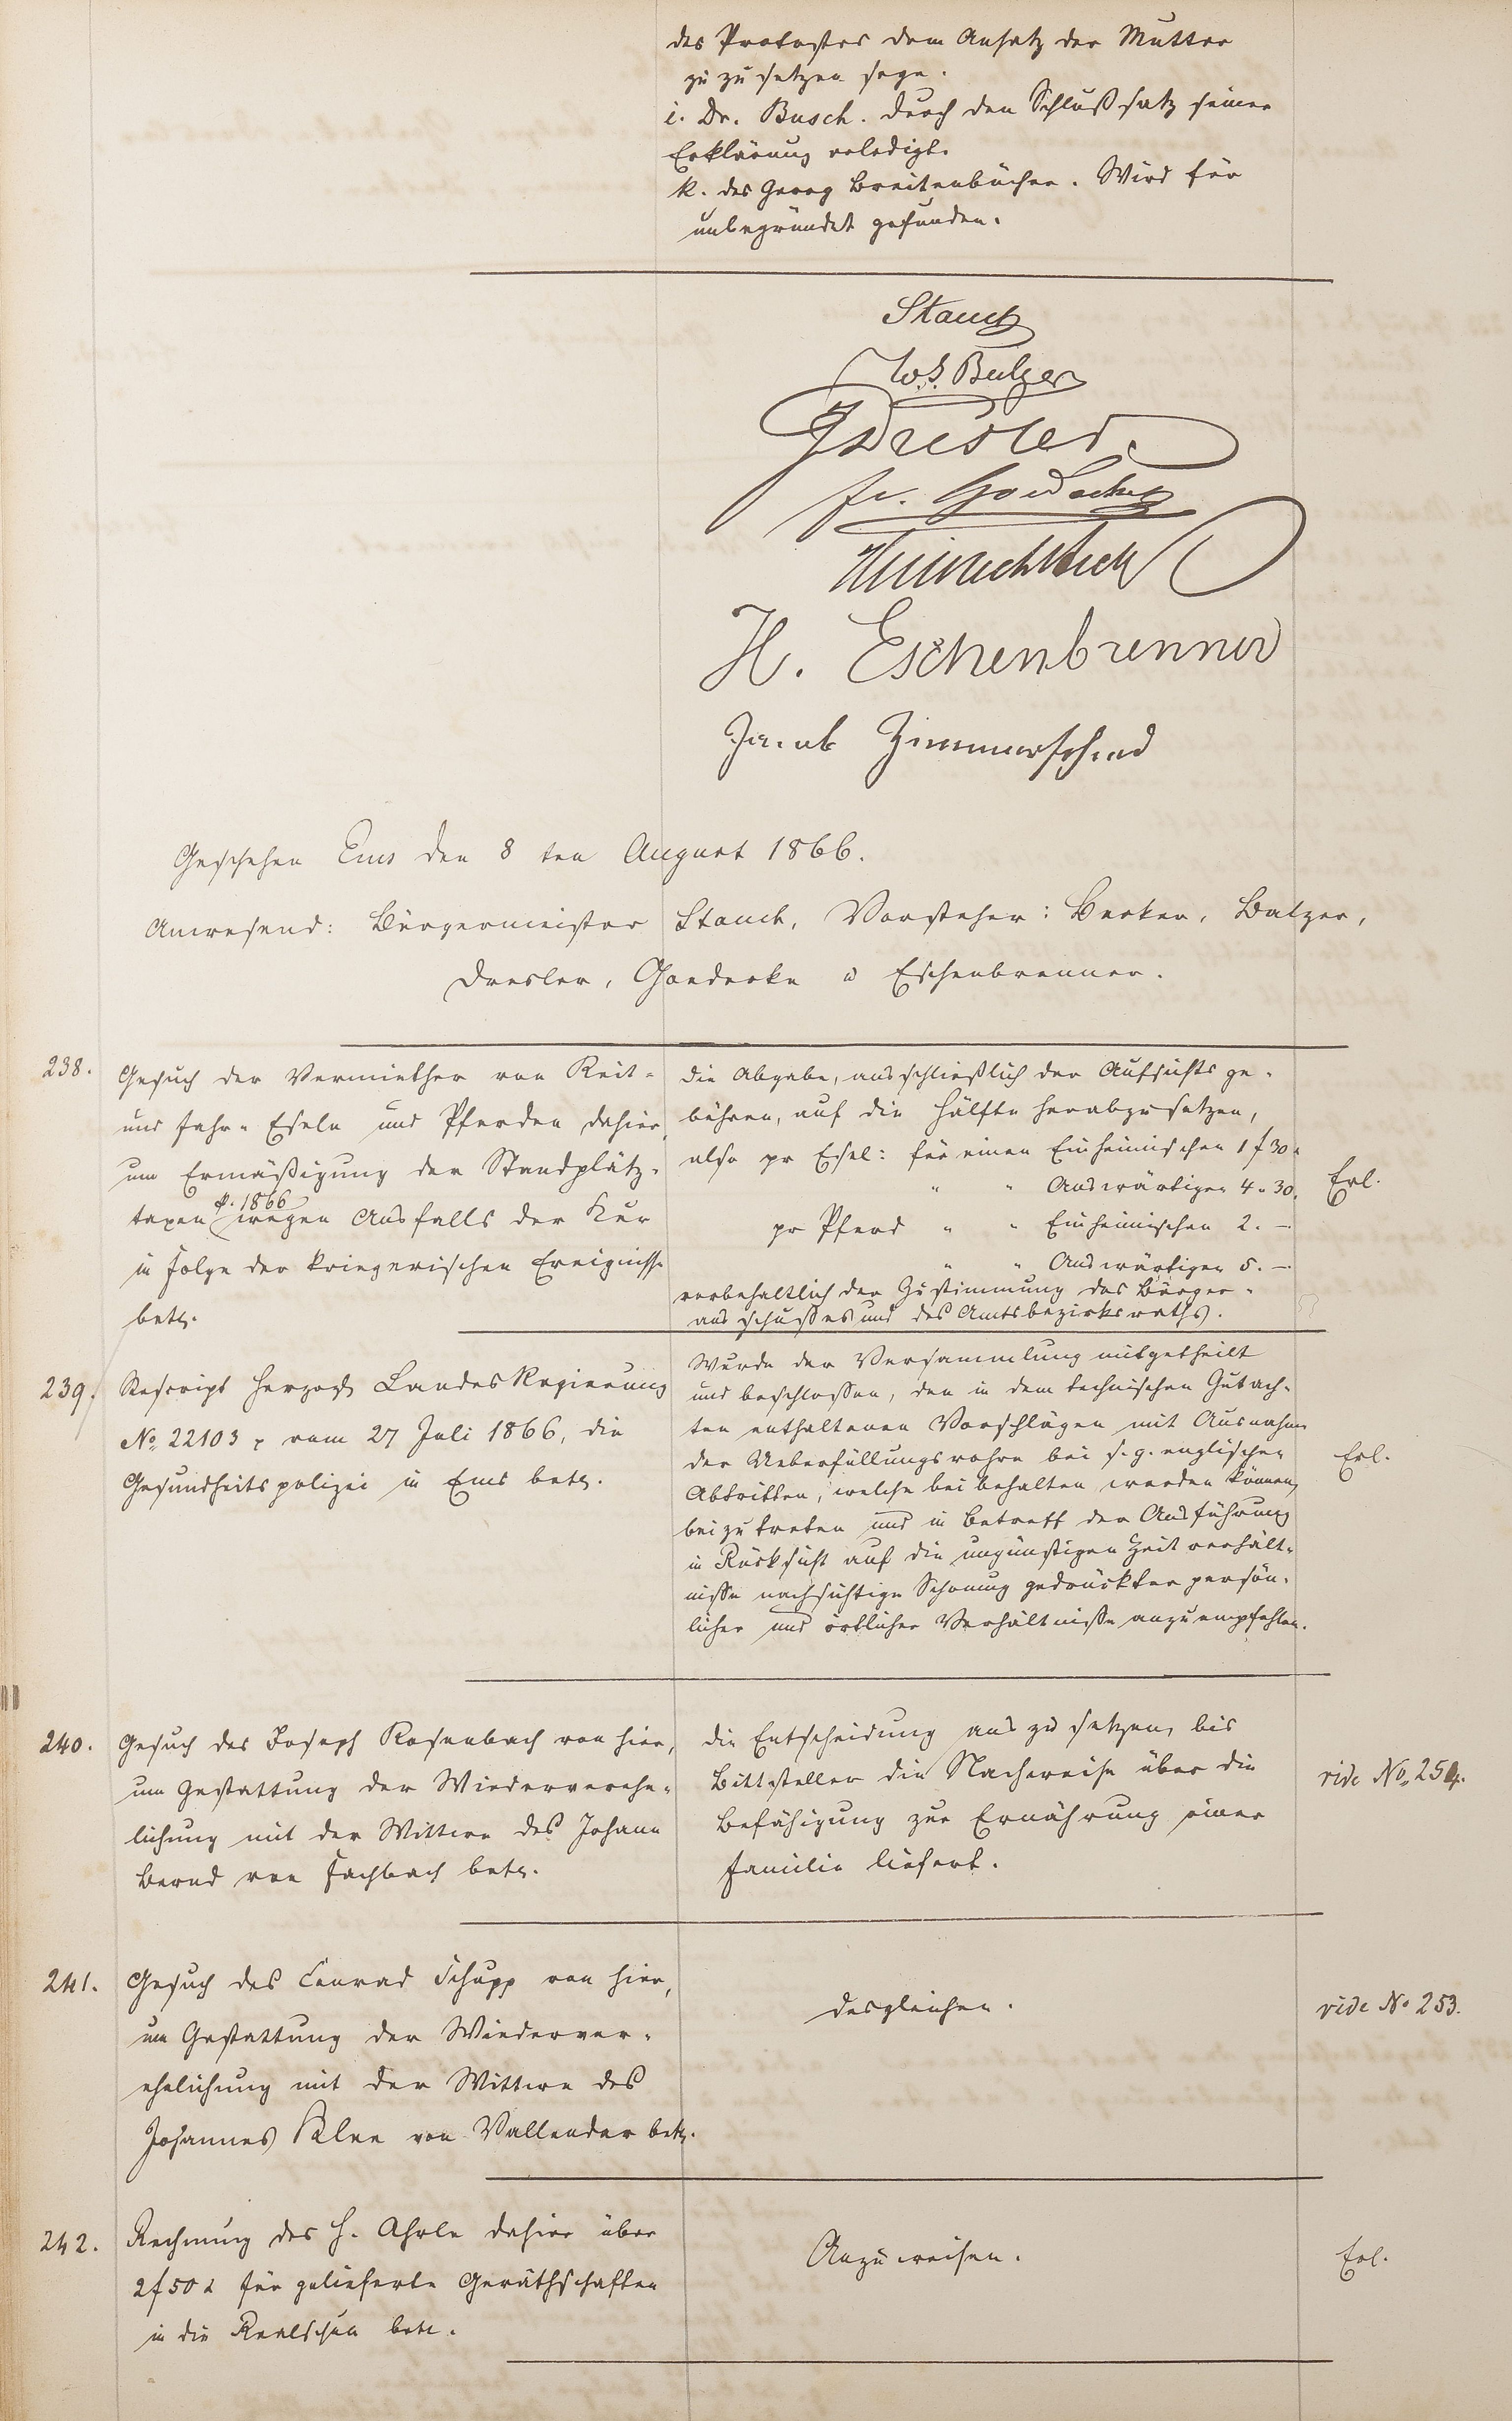 des Protestes dem Ansatz der Mutter
zu zu setzen seye.
i. Dr. Busch. durch den Schlußsatz seiner
Erklärung erledigt.
k. des Georg Breitenbücher. Wird für
unbegründet gefunden.
Stauch
W. Balzer
Dresler.
Fr. Goedecke
Heinrich
H. Eschenbrenner
Jacob Zimmerschied
Geschehen Ems den 8 ten August 1866.
Anwesend: Bürgermeister Stauch, Vorsteher: Becker, Balzer,
Dresler, Goedecke u Eschenbrenner.
238.
Gesuch der Vermiether von Reit-
und Fahr-Eseln und Pferden dahier,
um Ermäßigung der Standplätz-
p. 1866
taxen wegen Ausfalls der Kur
in Folge der kriegerischen Ereignisse
betr.
die Abgabe, ausschließlich der Aufsichts ge-
bühren, auf die Hälfte herabzusetzen,
also pr Esel: für einen Einheimischen 1 f 30.
" " Auswärtigen 4 " 30.
pr Pferd " " Einheimischen 2. —
" " Auswärtigen 5. —
vorbehaltlich der Zustimmung des Bürger-
ausschusses und des Amtsbezirksraths.
Erl.
239.
Rescript Herzogl. Landes Regierung
No. 22103 vom 27 Juli 1866, die
Gesundheitspolizei in Ems betr.
Wurde der Versammlung mitgetheilt
und beschlossen, den in dem technischen Gutach-
ten enthaltenen Vorschlägen mit Ausnahme
der Ueberfüllungsrohre bei s. g. englischen
Abtritten, welche bei behalten werden können,
beizutreten und in Betreff der Ausführung
in Rücksicht auf die ungünstigen Zeit verhält-
nisse nachsichtige Schonung gedrückter persön-
licher und örtlicher Verhältnisse anzuempfehlen.
Erl.
240.
Gesuch des Joseph Rosenbach von hier,
um Gestattung der Wiederverehe-
lichung mit der Wittwe des Johann
Bernd von Fachbach betr.
die Entscheidung aus zu setzen, bis
Bittsteller die Nachweise über die
Befähigung zur Ernährung einer
Familie liefert.
vide No. 254.
241.
Gesuch des Conrad Schupp von hier,
um Gestattung der Wiederver-
ehelichung mit der Wittwe des
Johannes Klee von Vallendar betr.
desgleichen.
vide No 253.
242.
Rechnung des H. Ahrle dahier über
2 f 50 x für gelieferte Geräthschaften
in die Realschule betr.
Anzuweisen.
Erl.